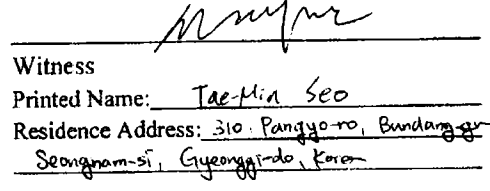 Witness
Printed Name: Tae-Min Seo
Residence Address: 310, Pangyo-ro, Bundang-gu
Seongnam-si, Gyeonggi-do, Korea